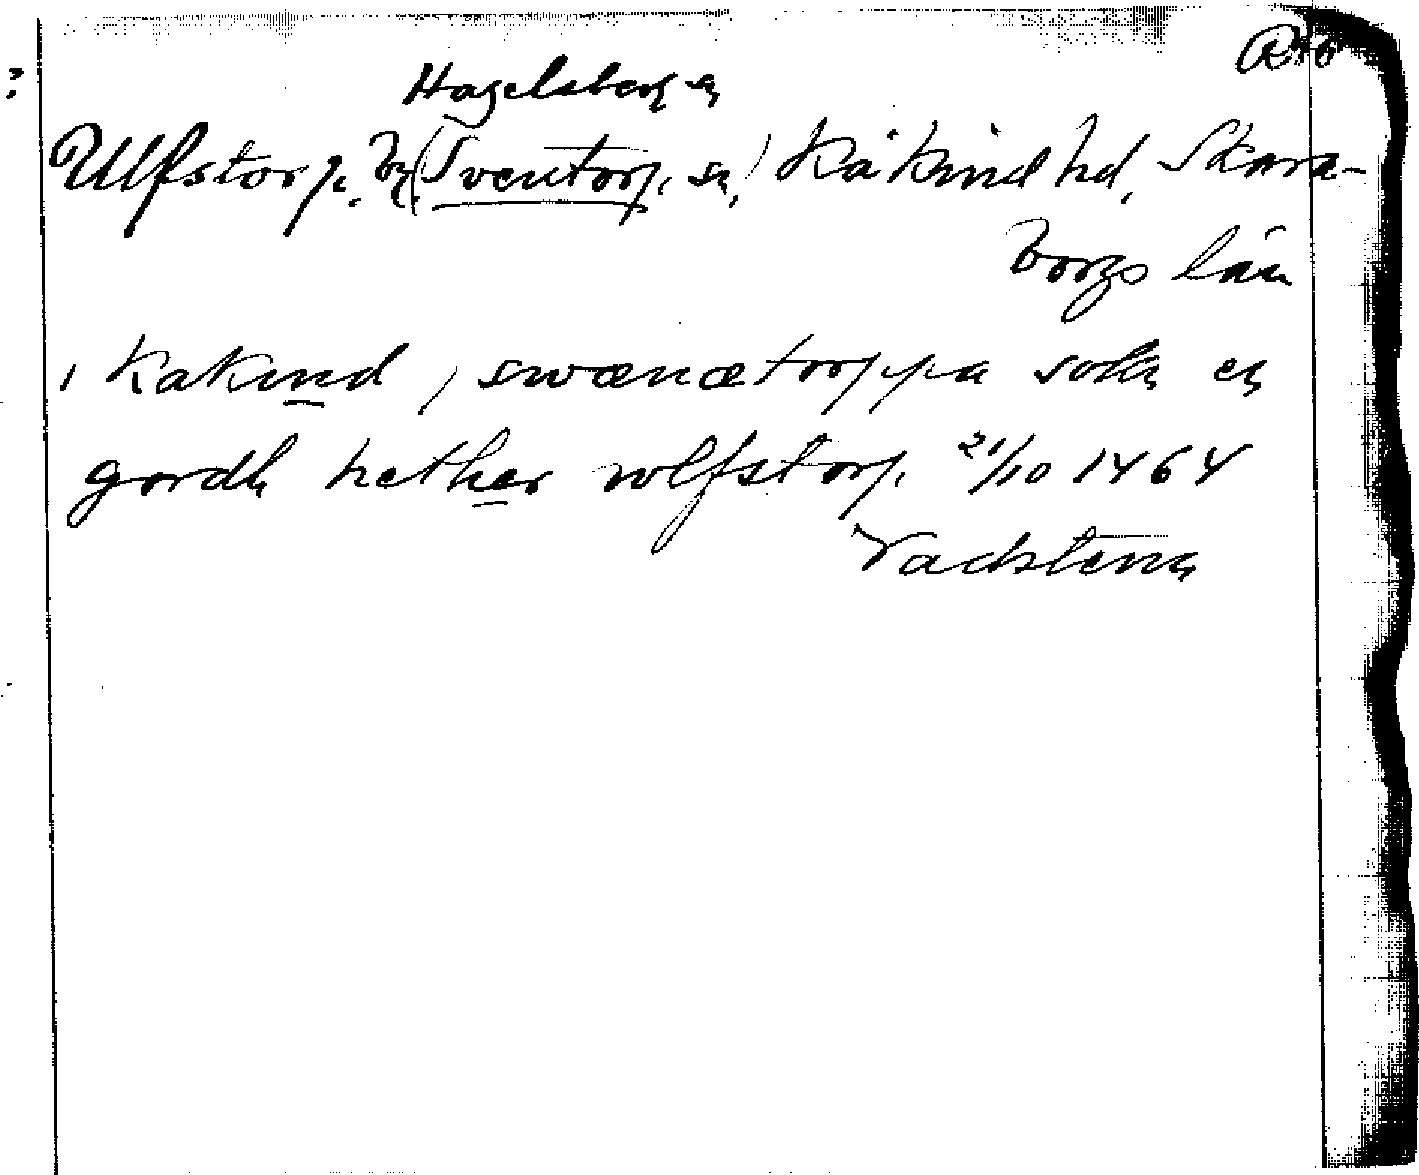 R46
Hagelsberg sn
Ulfstorp, by (Sventorp sn) Kåkind hd, Skara-
borgs län
i kakind i swænætorppa sokn en
gordh hether wlfstorp. 21/10 1464
Vadstena